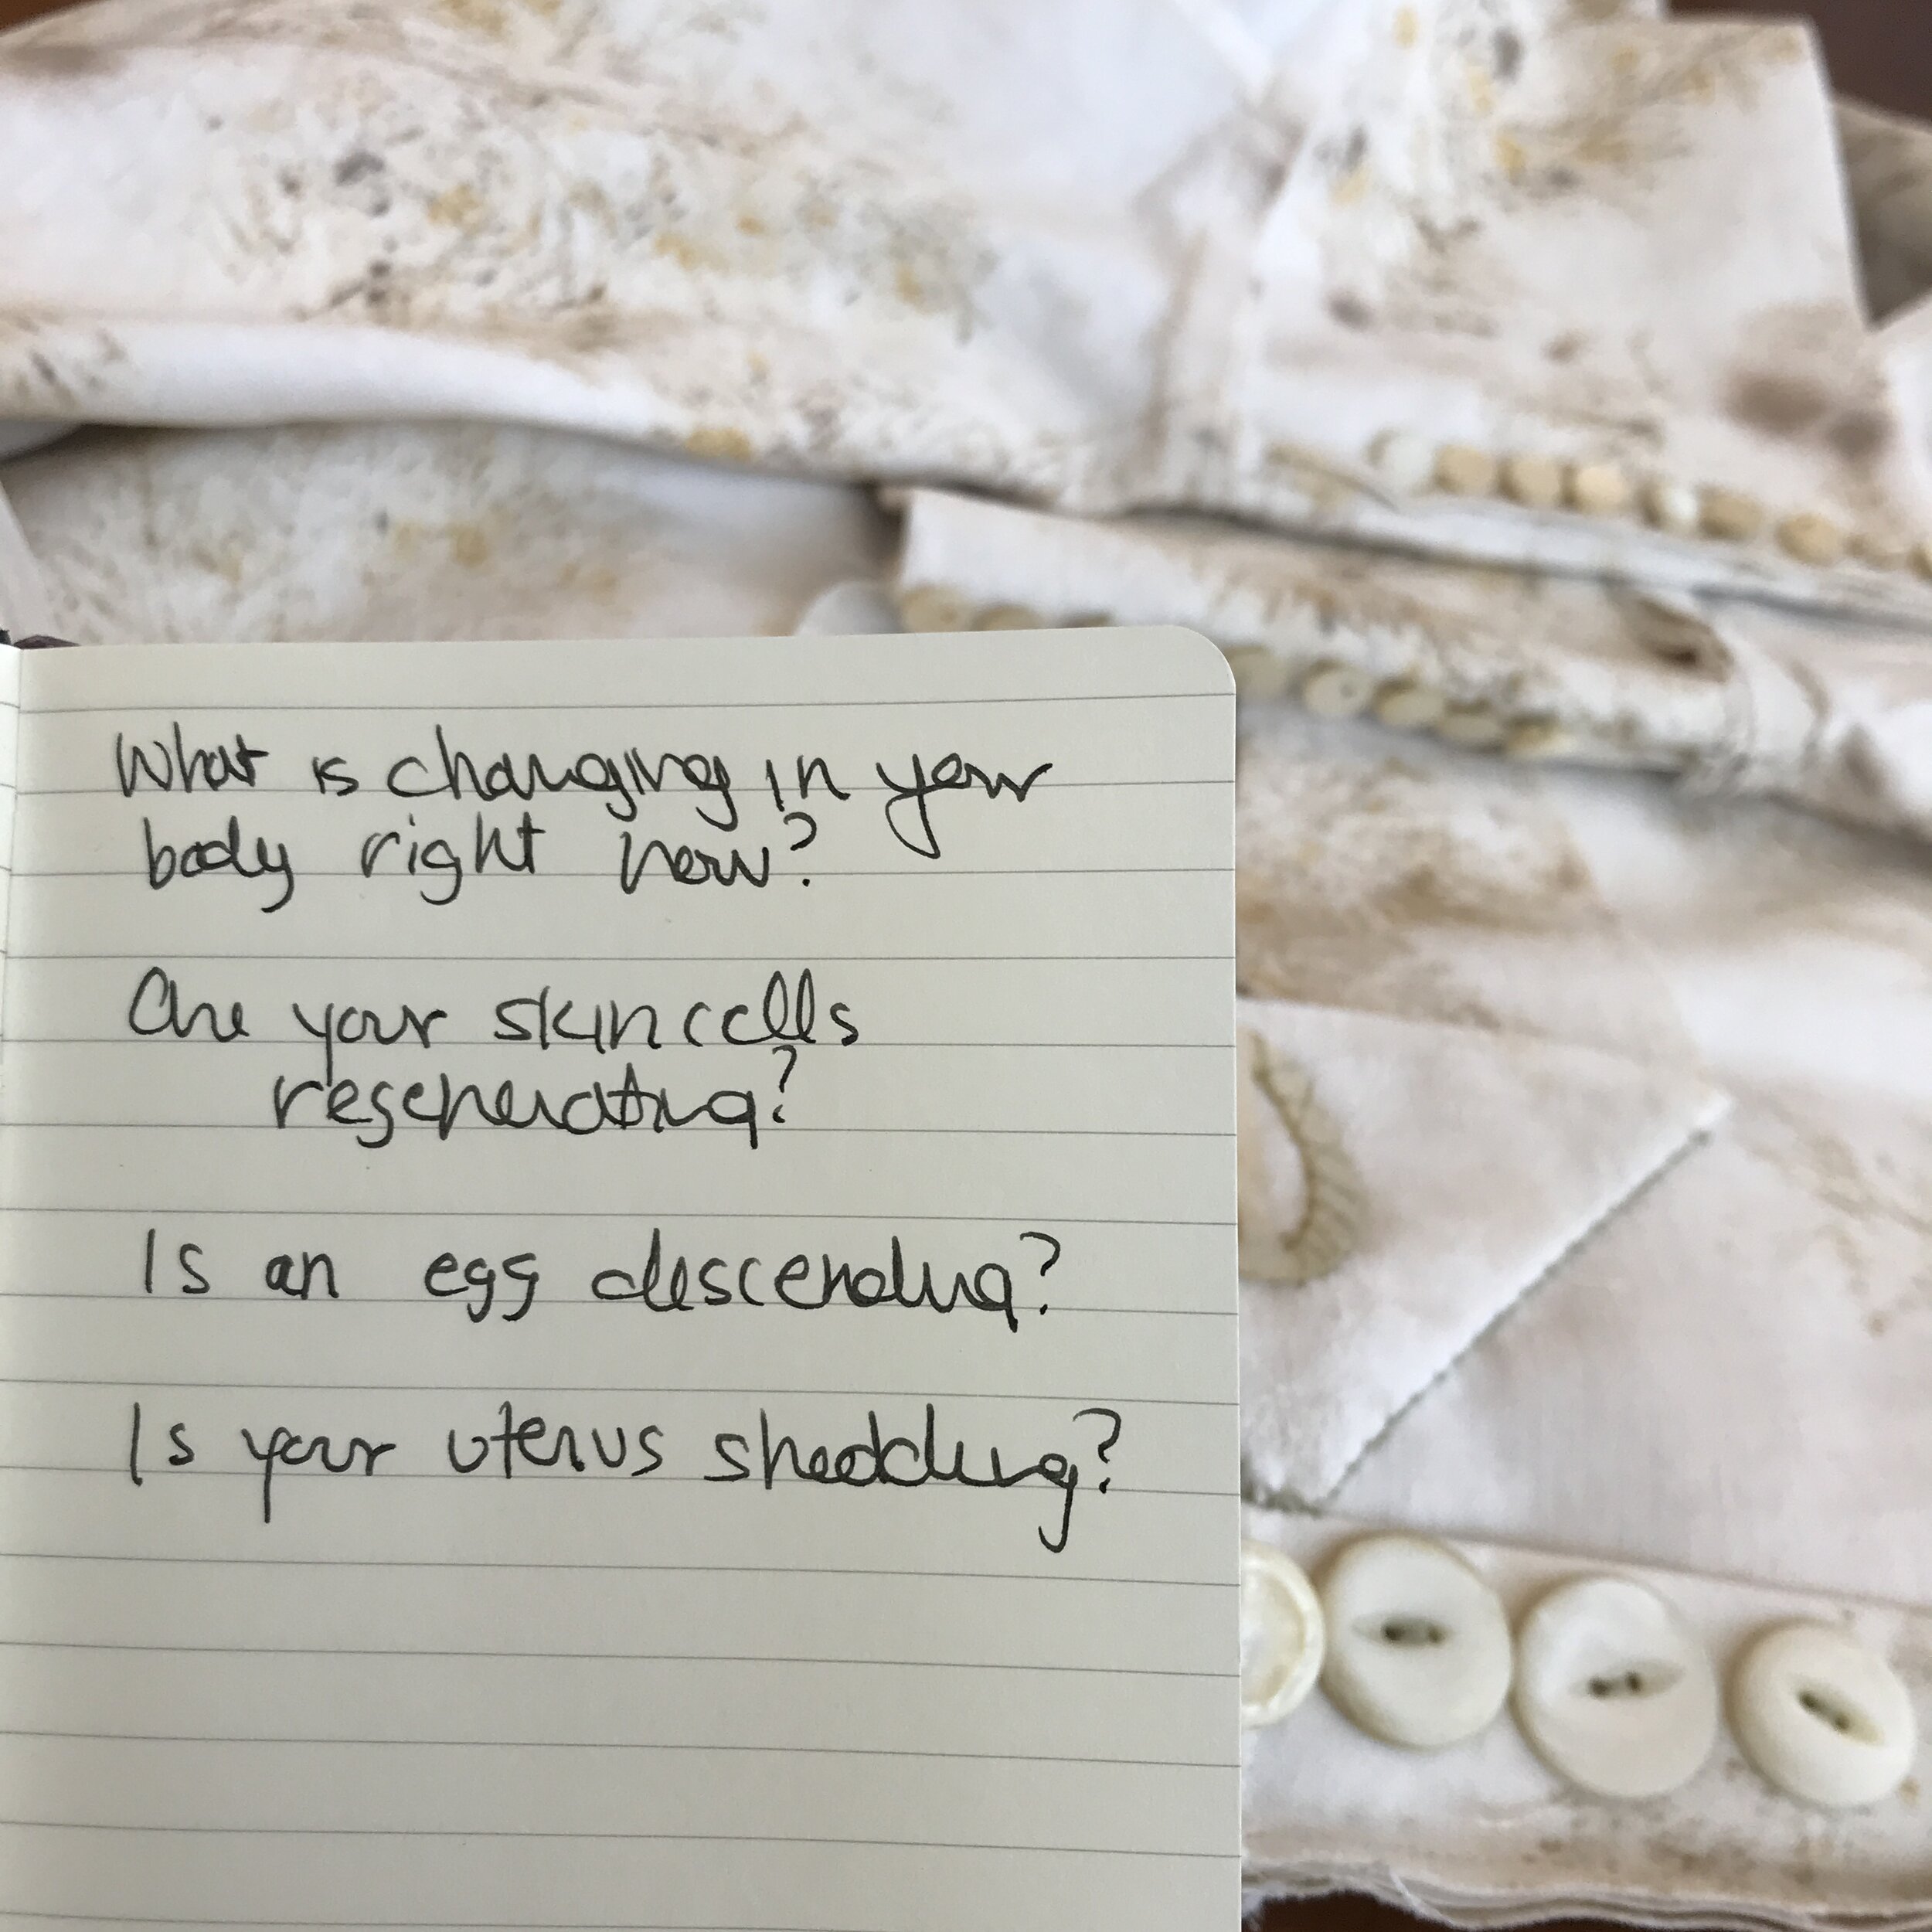 What is changing in your
body right now?
Are your skin cells
regenerating?
Is an egg descending?
Is your uterus shedding?